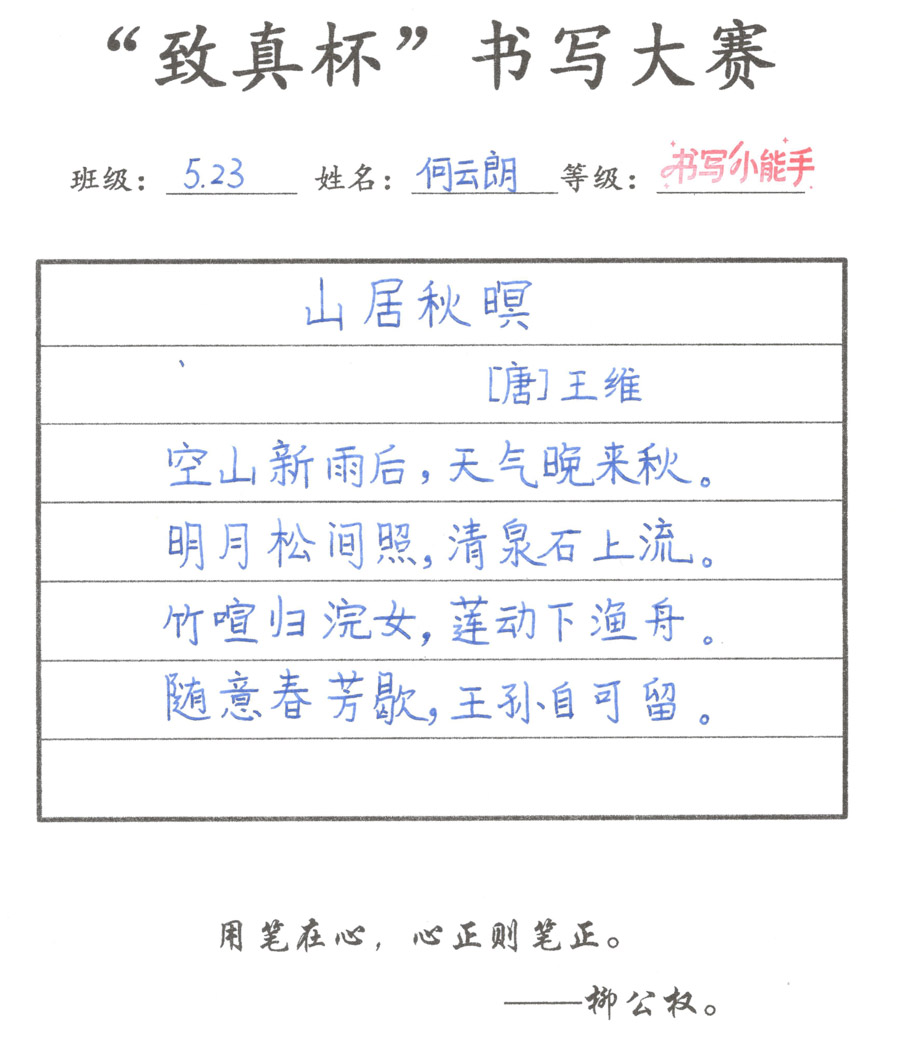 “致真杯”书写大赛
班级：5.23 姓名：何云朗 等级：书写小能手
山居秋暝
[唐]王维
空山新雨后，天气晚来秋。
明月松间照，清泉石上流。
竹喧归浣女，莲动下渔舟。
随意春芳歇，王孙自可留。
用笔在心，心正则笔正。
——柳公权。